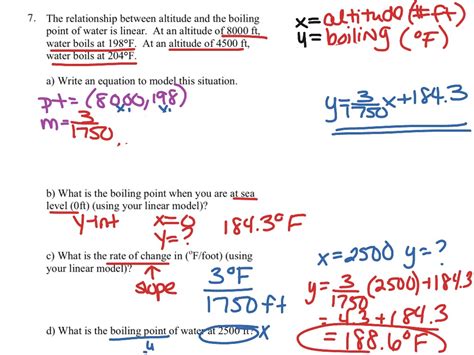 7. The relationship between altitude and the boiling
point of water is linear. At an altitude of 8000 ft,
water boils at 198°F. At an altitude of 4500 ft,
water boils at 204°F.
x = altitude (# ft)
y = boiling (°F)
a) Write an equation to model this situation.
pt = (8000, 198)
x. y.
m = 3/1750
y = 3/1750 x + 184.3
b) What is the boiling point when you are at sea
level (0ft) (using your linear model)?
y-int x=0 184.3°F
y=?
c) What is the rate of change in (°F/foot) (using
your linear model)?
slope
3°F/1750 ft
x = 2500 y = ?
y = 3/1750 (2500) + 184.3
= 4.3 + 184.3
= 188.6°F
d) What is the boiling point of water at 2500 ft? x
y